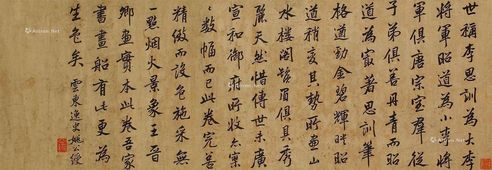 世稱李思訓為大李
將軍昭道為小李將
軍俱唐宗室群從
子弟俱善丹青而昭
道為最著思訓筆
格遒勁金碧輝映昭
道稍變其勢所畫山
水樓閣鬚眉俱具秀
麗天然惜傳世未廣
宣和御府所收亦寥
寥數幅而已此卷完善
精緻而設色施采無
一點烟火景象王晉
卿畫實本此卷吾家
書畫船有此更為
生色矣 雲東逸史姚公綬